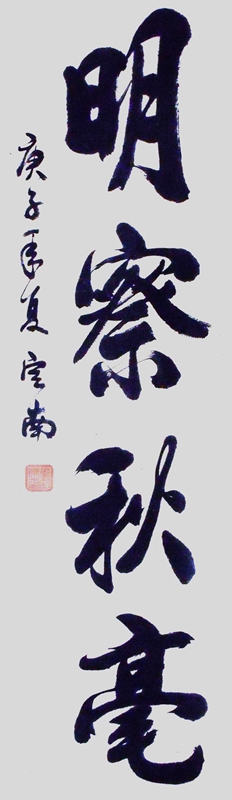 明察秋毫
庚子年夏定南